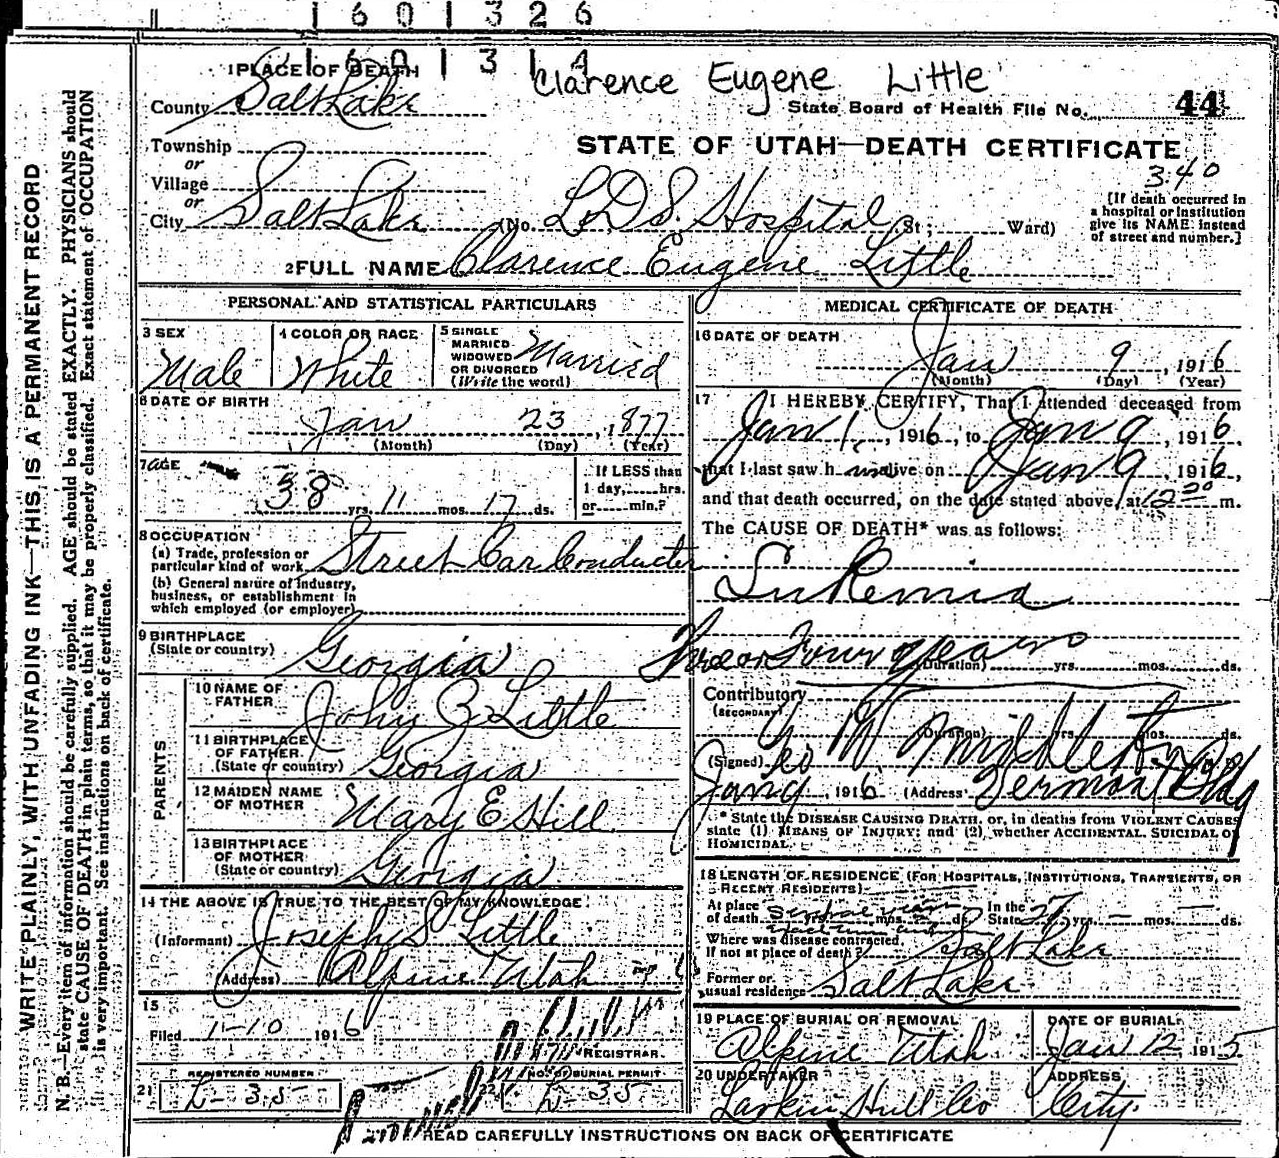 1601326
1601314
Clarence Eugene Little
1 PLACE OF DEATH
County Salt Lake
State Board of Health File No. 44
Township
or
Village
or
City Salt Lake (No. L.D.S. Hospital St; Ward)
STATE OF UTAH—DEATH CERTIFICATE
340
[If death occurred in
a hospital or institution
give its NAME instead
of street and number.]
2 FULL NAME Clarence Eugene Little
PERSONAL AND STATISTICAL PARTICULARS
3 SEX
Male
4 COLOR OR RACE
White
5 SINGLE
MARRIED
WIDOWED
OR DIVORCED
(Write the word)
Married
6 DATE OF BIRTH
Jan 23, 1877
(Month) (Day) (Year)
7 AGE
38 yrs. 11 mos. 17 ds.
If LESS than
1 day, hrs.
or min.?
8 OCCUPATION
(a) Trade, profession or
particular kind of work Street Car Conductor
(b) General nature of industry,
business, or establishment in
which employed (or employer)
9 BIRTHPLACE
(State or country) Georgia
PARENTS
10 NAME OF
FATHER John Z Little
11 BIRTHPLACE
OF FATHER
(State or country) Georgia
12 MAIDEN NAME
OF MOTHER Mary E Hill
13 BIRTHPLACE
OF MOTHER
(State or country) Georgia
14 THE ABOVE IS TRUE TO THE BEST OF MY KNOWLEDGE
(Informant) Joseph S Little
(Address) Alpine Utah
15
Filed 1-10 1916
REGISTRAR.
21 REGISTERED NUMBER
L-35
22 NO. OF BURIAL PERMIT
L-35
MEDICAL CERTIFICATE OF DEATH
16 DATE OF DEATH
Jan 9, 1916
(Month) (Day) (Year)
17 I HEREBY CERTIFY, That I attended deceased from
Jan 1, 1916, to Jan 9, 1916,
that I last saw him alive on Jan 9, 1916,
and that death occurred, on the date stated above, at m.
The CAUSE OF DEATH* was as follows:
Lukemia
Three or Four years
(Duration) yrs. mos. ds.
Contributory
(SECONDARY)
(Duration) yrs. mos. ds.
(Signed) Geo W Middleton
Jan 9, 1916 (Address) Bldg
* State the DISEASE CAUSING DEATH, or, in deaths from VIOLENT CAUSES
state (1) MEANS OF INJURY; and (2) whether ACCIDENTAL, SUICIDAL OR
HOMICIDAL.
18 LENGTH OF RESIDENCE (FOR HOSPITALS, INSTITUTIONS, TRANSIENTS, OR
RECENT RESIDENTS)
At place
of death yrs. mos. ds. In the State 27 yrs. — mos. — ds.
Where was disease contracted,
If not at place of death? Salt Lake
Former or
usual residence Salt Lake
19 PLACE OF BURIAL OR REMOVAL
Alpine Utah
DATE OF BURIAL
Jan 12, 1915
20 UNDERTAKER
Larkin Hull Co
ADDRESS
City
READ CAREFULLY INSTRUCTIONS ON BACK OF CERTIFICATE
WRITE PLAINLY, WITH UNFADING INK—THIS IS A PERMANENT RECORD
N. B.—Every item of information should be carefully supplied. AGE should be stated EXACTLY. PHYSICIANS should
state CAUSE OF DEATH in plain terms, so that it may be properly classified. Exact statement of OCCUPATION
is very important. See instructions on back of certificate.